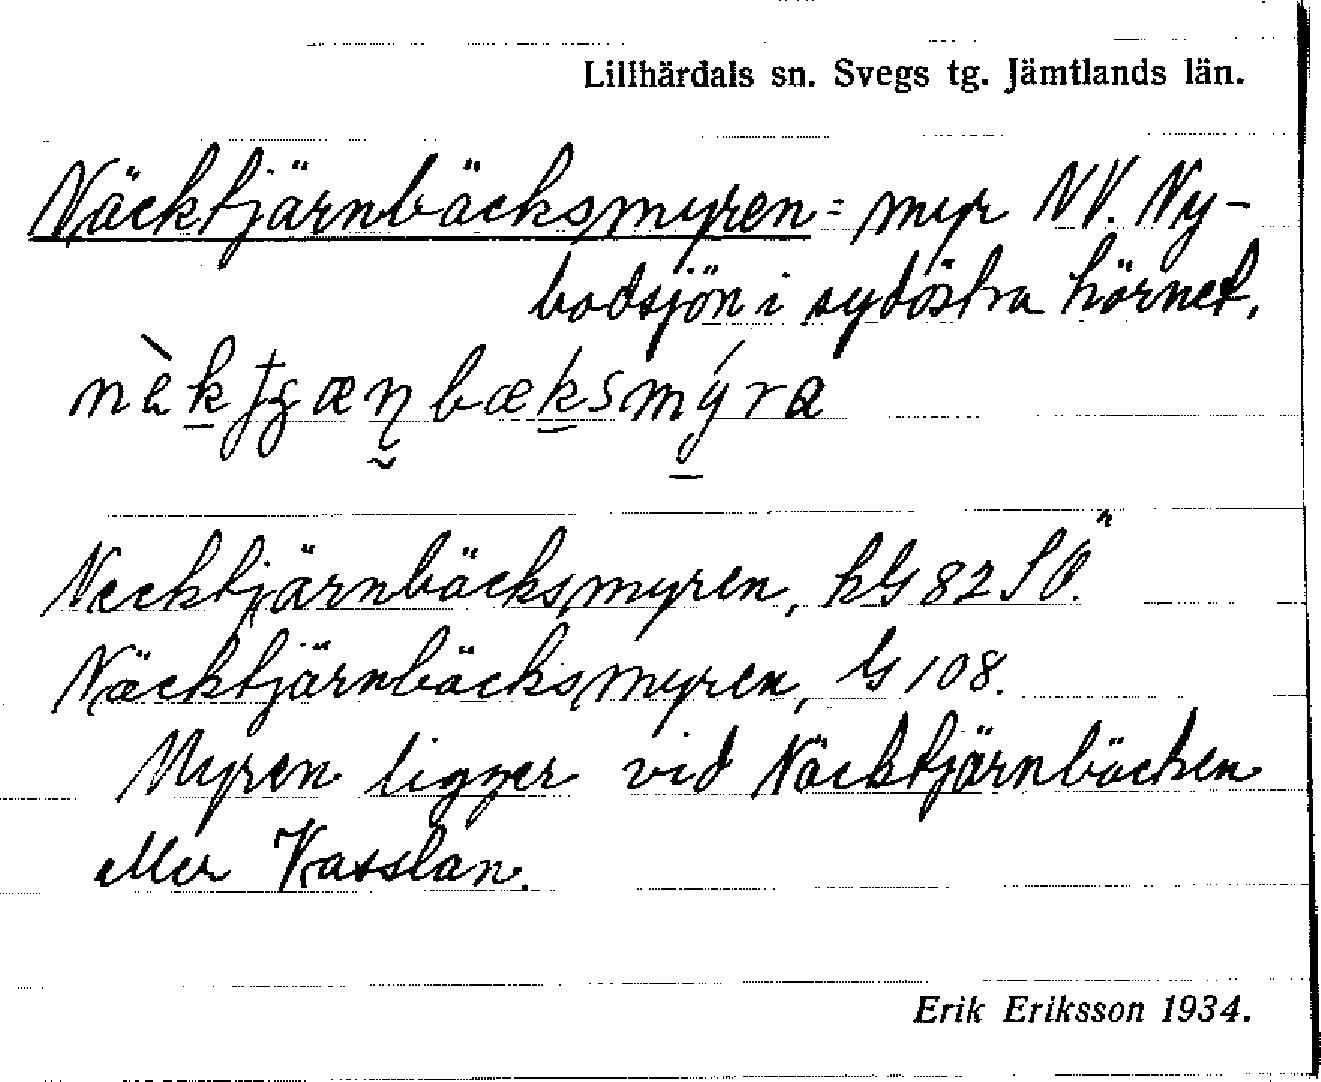 Lillhärdals sn. Svegs tg. Jämtlands län.
Näcktjärnbäcksmyren = myr NV. Ny-
bodsjön i sydöstra hörnet.
Necktjärnbäcksmyren, hG 82 SÖ.
Näcktjärnbäcksmyren, G 108.
Myren ligger vid Näcktjärnbäcken
eller Vasslan.
Erik Eriksson 1934.